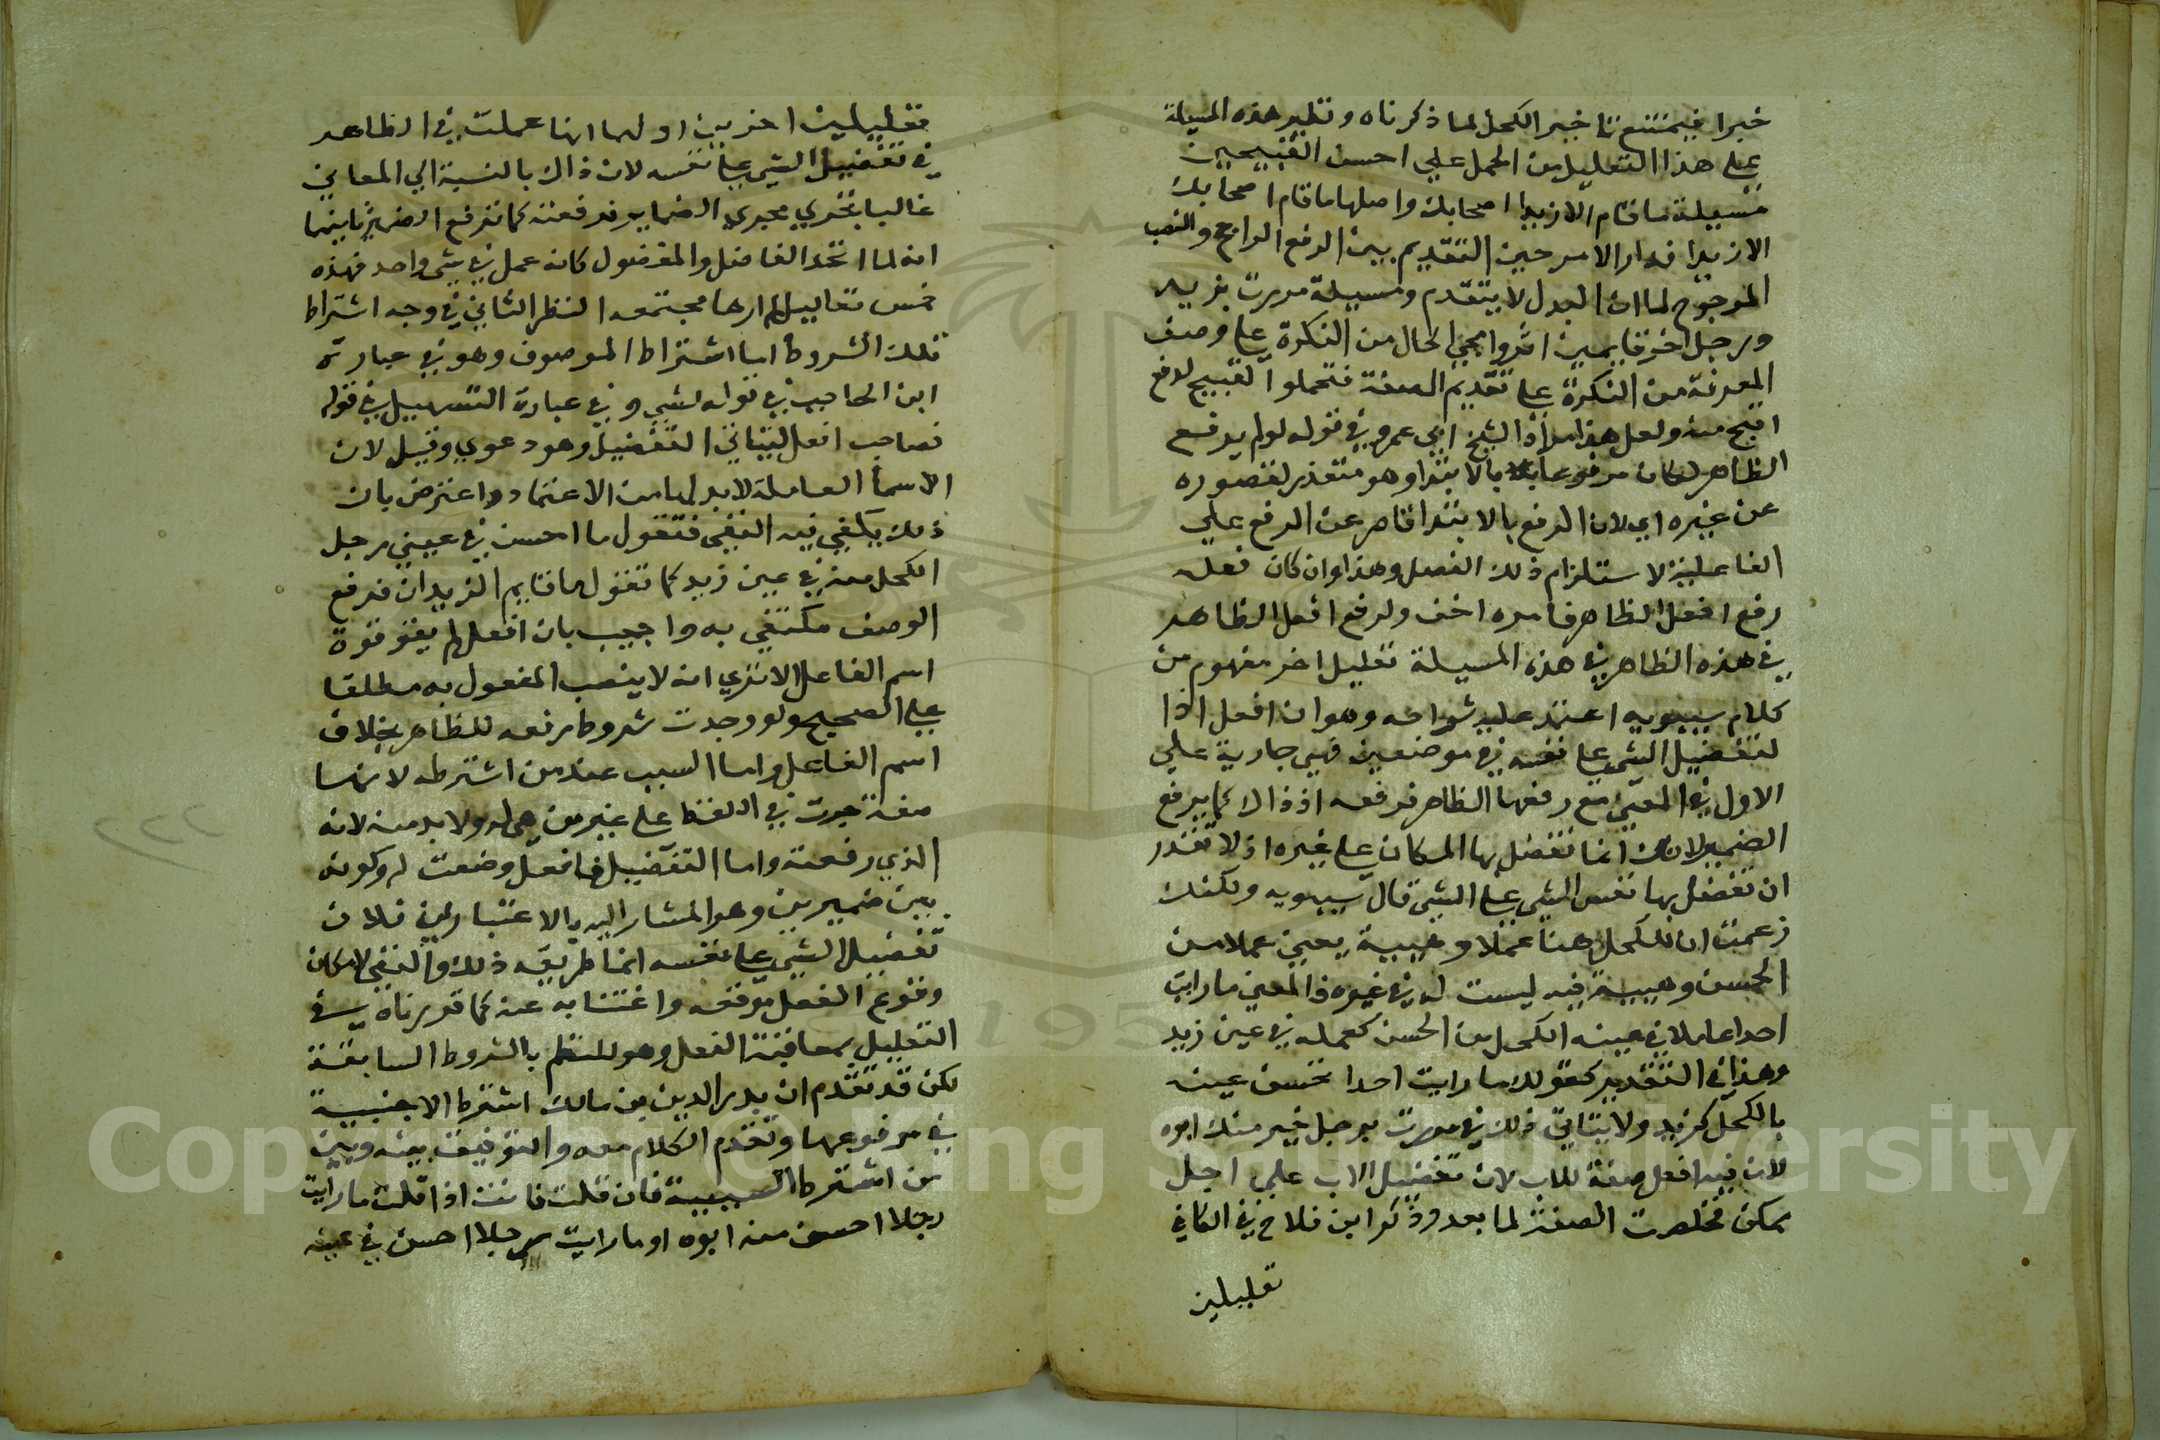 خبرا فيمتنع تاخير الكحل لما ذكرناه ونظير هذه المسيلة
علي هذا التعليل من الحمل علي احسن القبيحين
مسيلة ما قام الا زيدا اصحابك واصلها ما قام اصحابك
الا زيدا فدار الامر حين التقديم بين الرفع الراجح والنصب
المرجوح لما ان البدل لا يتقدم ومسيلة مررت بزيد
ورجل اخر قايمين اثروا مجي الحال من النكرة علي وصف
المعرفة من النكرة علي تقديم الصفة فتحملوا القبيح لدفع
اقبح منه ولعل هذا مراد الشيخ ابي عمرو في قوله لو لم يرفع
الظاهر لكان مرفوعا بالابتدا وهو متعذر لقصوره
عن غيره اي لان الرفع بالابتدا قاصر عن الرفع علي
الفاعلية لاستلزام ذلك الفصل وهذا وان كان فعله
رفع افعل الظاهر فامره اخف ولرفع افعل الظاهر
في هذه الظاهر في هذه المسيلة تعليل اخر مفهوم من
كلام سيبويه اعتمد عليه شراحه وهو ان افعل اذا
لتفضيل الشي علي نفسه في موضعين فهي جارية علي
الاول في المعني مع رفعها الظاهر فرفعه اذ ذاك كما يرفع
الضمير لانك انما تفضل بها المكان علي غيره اذ لا تقدر
ان تفضل بها نفس الشي علي الشي قال سيبويه ولكنك
زعمت ان للكحل هنا عملا وهيية يعني عملا من
الحسن وهيية فيه ليست له في غيره فالمعني ما رايت
احدا عاملا في عينه الكحل من الحسن كعمله في عين زيد
وهذا في التقدير كقولك ما رايت احدا تحسن عينه
بالكحل كزيد ولا يتاتي ذلك في مررت برجل خير منك ابوه
لان فيه افعل صفة للاب لان تفضيل الاب علي اجل
يمكن فخلصت الصفة لما بعد وذكر ابن فلاح في الكافي
تعليلين
تعليلين اخريين اولها انها عملت في الظاهر
في تفضيل الشي علي نفسه لان ذاك بالنسبة الي المعاني
غالبا بتجري مجري الضماير فرفعته كما ترفع الضمير ثانيها
انه لما اتحد الفاضل والمفضول كانه عمل في شي واحد فهذه
خمس تعاليل لم ارها مجتمعه النظر الثاني في وجه اشتراط
تلك الشروط اما اشتراط الموصوف وهو في عبارة
ابن الحاجب في قوله لشي و في عبارة التسهيل في قوله
لصاحب افعل ليتاتي التفضيل وهو دعوي وقيل لان
الاسما العاملة لابد لها من الاعتماد واعترض بان
ذلك يكفي فيه النفي فتقول ما احسن في عيني رجل
الكحل منه في عين زيد كما تقول ما قايم الزيدان فرفع
الوصف مكتفي به واجيب بان افعل لم يقو قوة
اسم الفاعل الا تري انه لا ينصب المفعول به مطلقا
علي الصحيح ولو وجدت شروط رفعه للظاهر بخلاف
اسم الفاعل واما السبب عند من اشترطه لانها
صفة جرت في اللفظ علي غير من هي له ولابد منه لانه
الذي رفعته واما التفضيل فما افعل وضعت له وكونه
بين ضميرين وهو المشار اليه بالاعتبارين فلان
تفضيل الشي علي نفسه انما طريقه ذلك والنفي لامكان
وقوع الفعل موقعه واغتنا به عنه كما قررناه في
التعليل بمعاقبة الفعل وهو للتعلم بالشروط السابقة
لكن قد تقدم ان بدر الدين بن مالك اشترط الاجنبية
في مرفوعها وتقدم الكلام معه والتوفيق بينه وبين
من اشترط السببية فان قلت فانت اذا قلت ما رايت
رجلا احسن منه ابوه او ما رايت رجلا احسن في عينه
٢٢٢
Copyright © King Saud University
195